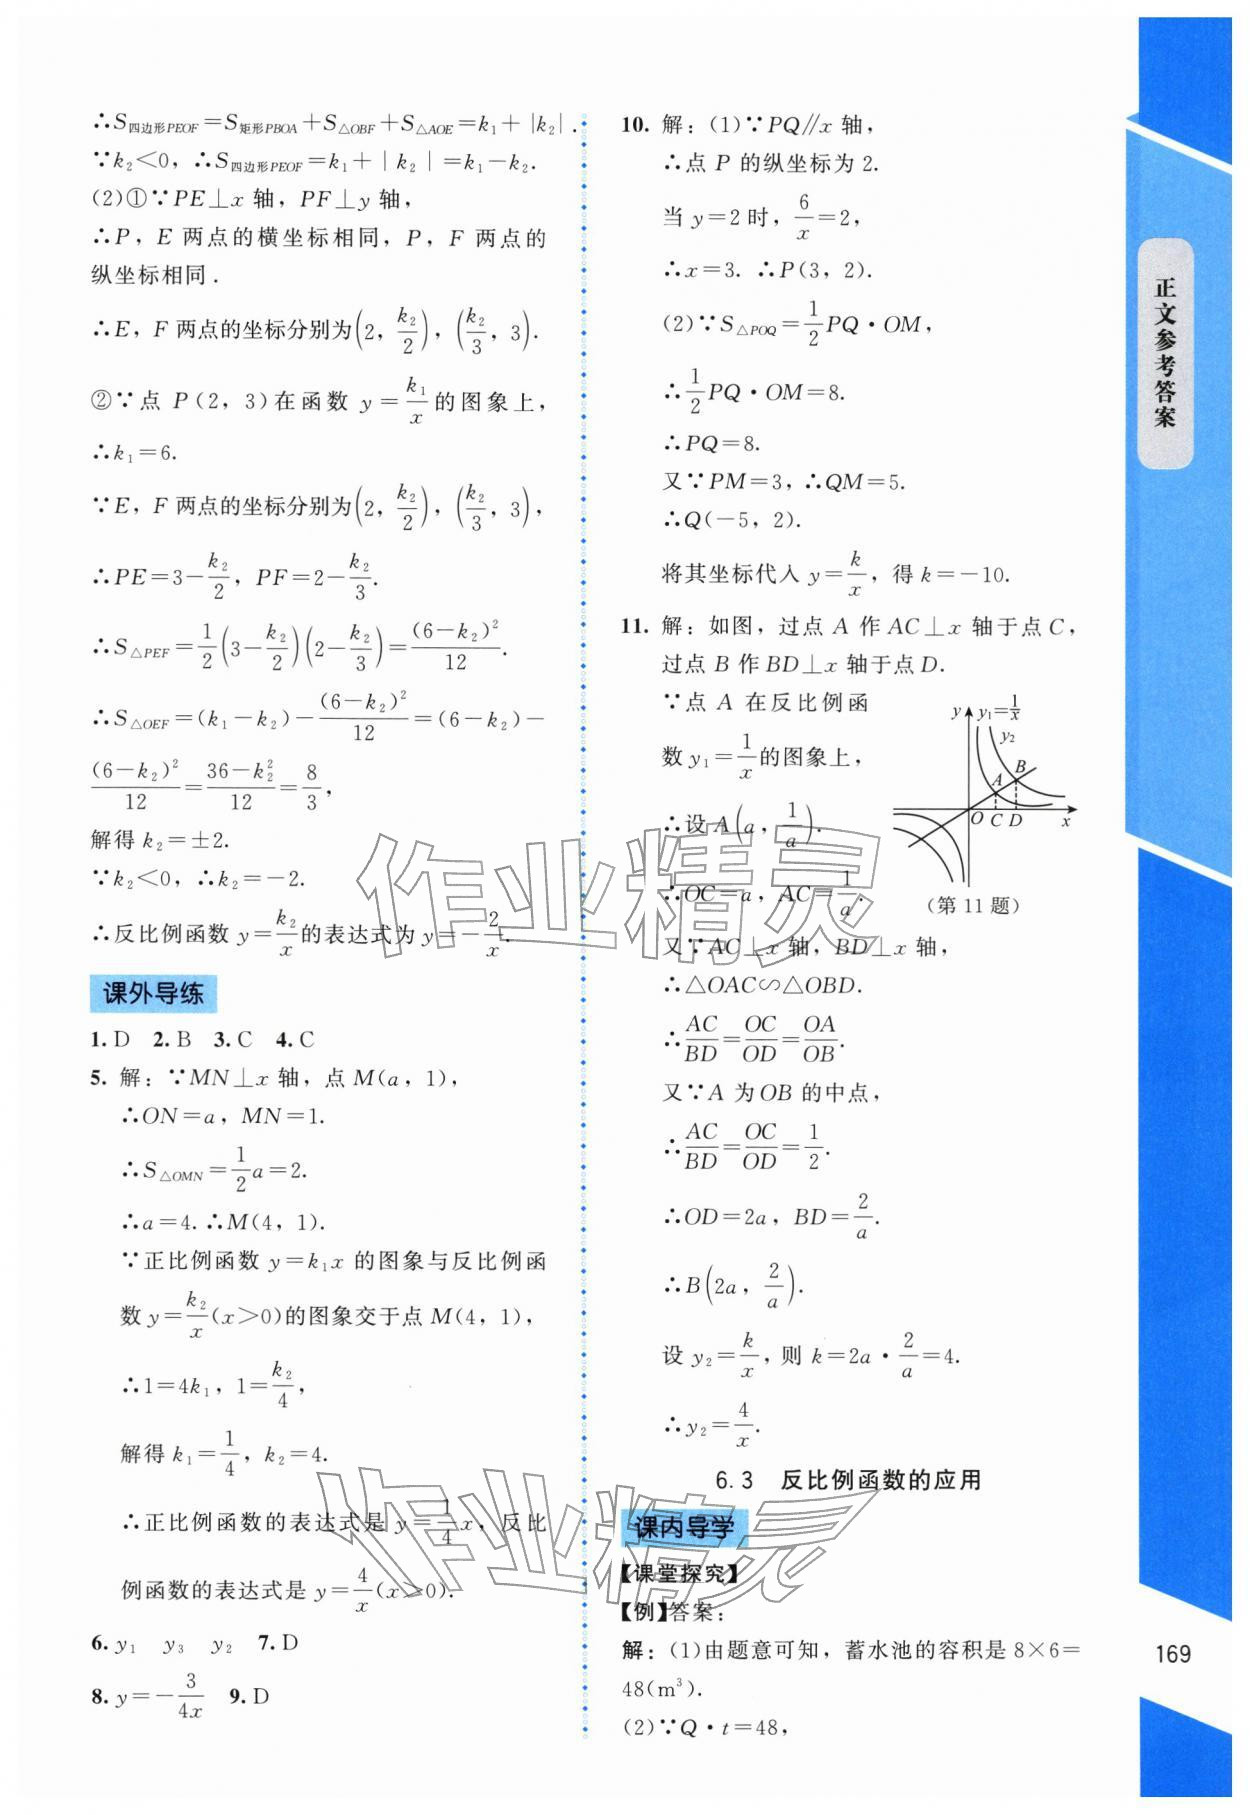 ∴S四边形PEOF=S矩形PBOA+S△OBF+S△AOE=k₁+|k₂|.
∵k₂<0，∴S四边形PEOF=k₁+|k₂|=k₁-k₂.
(2)①∵PE⊥x 轴，PF⊥y 轴，
∴P，E 两点的横坐标相同，P，F 两点的
纵坐标相同.
∴E，F 两点的坐标分别为(2，k₂/2)，(k₂/3，3).
②∵点 P(2，3)在函数 y=k₁/x 的图象上，
∴k₁=6.
∵E，F 两点的坐标分别为(2，k₂/2)，(k₂/3，3)，
∴PE=3-k₂/2，PF=2-k₂/3.
∴S△PEF=1/2(3-k₂/2)(2-k₂/3)=(6-k₂)²/12.
∴S△OEF=(k₁-k₂)-(6-k₂)²/12=(6-k₂)-
(6-k₂)²/12=(36-k₂²)/12=8/3，
解得 k₂=±2.
∵k₂<0，∴k₂=-2.
∴反比例函数 y=k₂/x 的表达式为 y=-2/x.
课外导练
1. D 2. B 3. C 4. C
5. 解：∵MN⊥x 轴，点 M(a，1)，
∴ON=a，MN=1.
∴S△OMN=1/2a=2.
∴a=4. ∴M(4，1).
∵正比例函数 y=k₁x 的图象与反比例函
数 y=k₂/x(x>0)的图象交于点 M(4，1)，
∴1=4k₁，1=k₂/4，
解得 k₁=1/4，k₂=4.
∴正比例函数的表达式是 y=1/4x，反比
例函数的表达式是 y=4/x(x>0).
6. y₁ y₃ y₂ 7. D
8. y=-3/4x 9. D
10. 解：(1)∵PQ∥x 轴，
∴点 P 的纵坐标为 2.
当 y=2 时，6/x=2，
∴x=3. ∴P(3，2).
(2)∵S△POQ=1/2PQ·OM，
∴1/2PQ·OM=8.
∴PQ=8.
又∵PM=3，∴QM=5.
∴Q(-5，2).
将其坐标代入 y=k/x，得 k=-10.
11. 解：如图，过点 A 作 AC⊥x 轴于点 C，
过点 B 作 BD⊥x 轴于点 D.
∵点 A 在反比例函
数 y₁=1/x 的图象上，
∴设 A(a，1/a).
∴OC=a，AC=1/a.
又∵AC⊥x 轴，BD⊥x 轴，
∴△OAC∽△OBD.
∴AC/BD=OC/OD=OA/OB.
又∵A 为 OB 的中点，
∴AC/BD=OC/OD=1/2.
∴OD=2a，BD=2/a.
∴B(2a，2/a).
设 y₂=k/x，则 k=2a·2/a=4.
∴y₂=4/x.
y y₁=1/x
y₂
A B
O C D x
(第 11 题)
6.3 反比例函数的应用
课内导学
【课堂探究】
【例】答案：
解：(1)由题意可知，蓄水池的容积是 8×6=
48(m³).
(2)∵Q·t=48，
正文参考答案
169
作业精灵
作业精灵